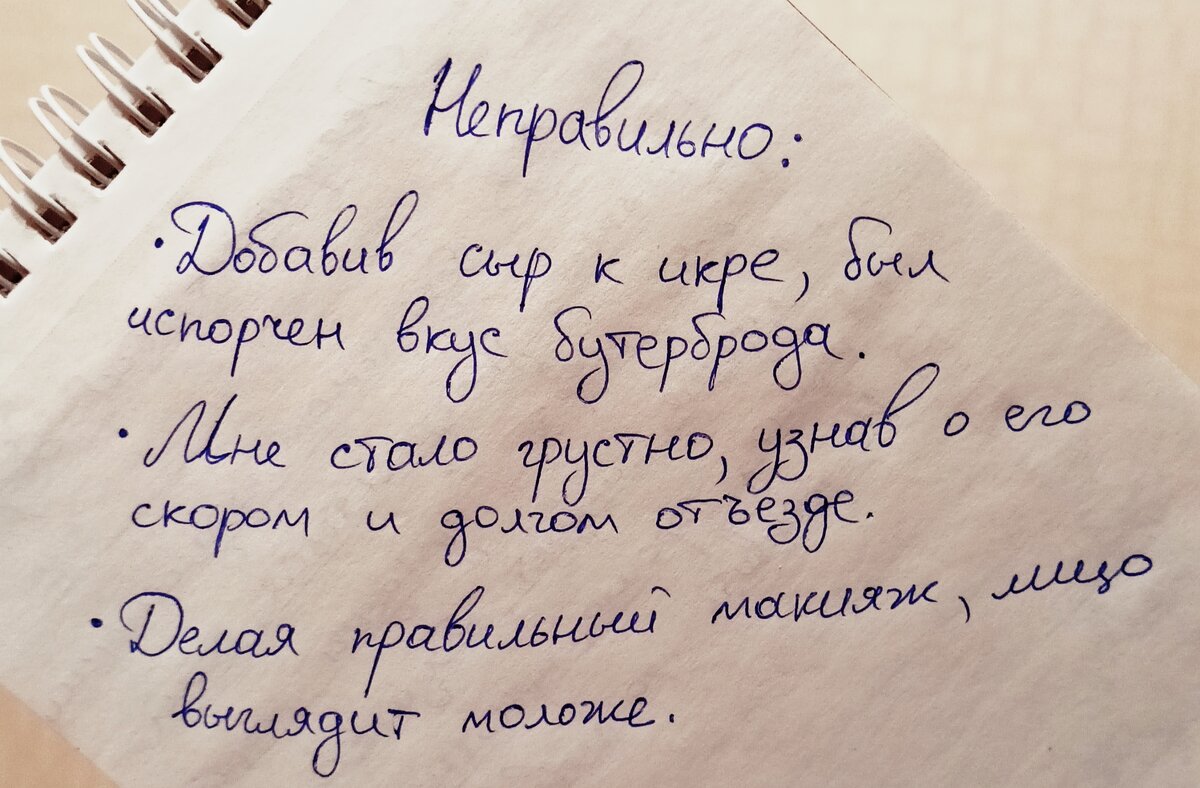 Неправильно:
• Добавив сыр к икре, был
испорчен вкус бутерброда.
• Мне стало грустно, узнав о его
скором и долгом отъезде.
• Делая правильный макияж, лицо
выглядит моложе.